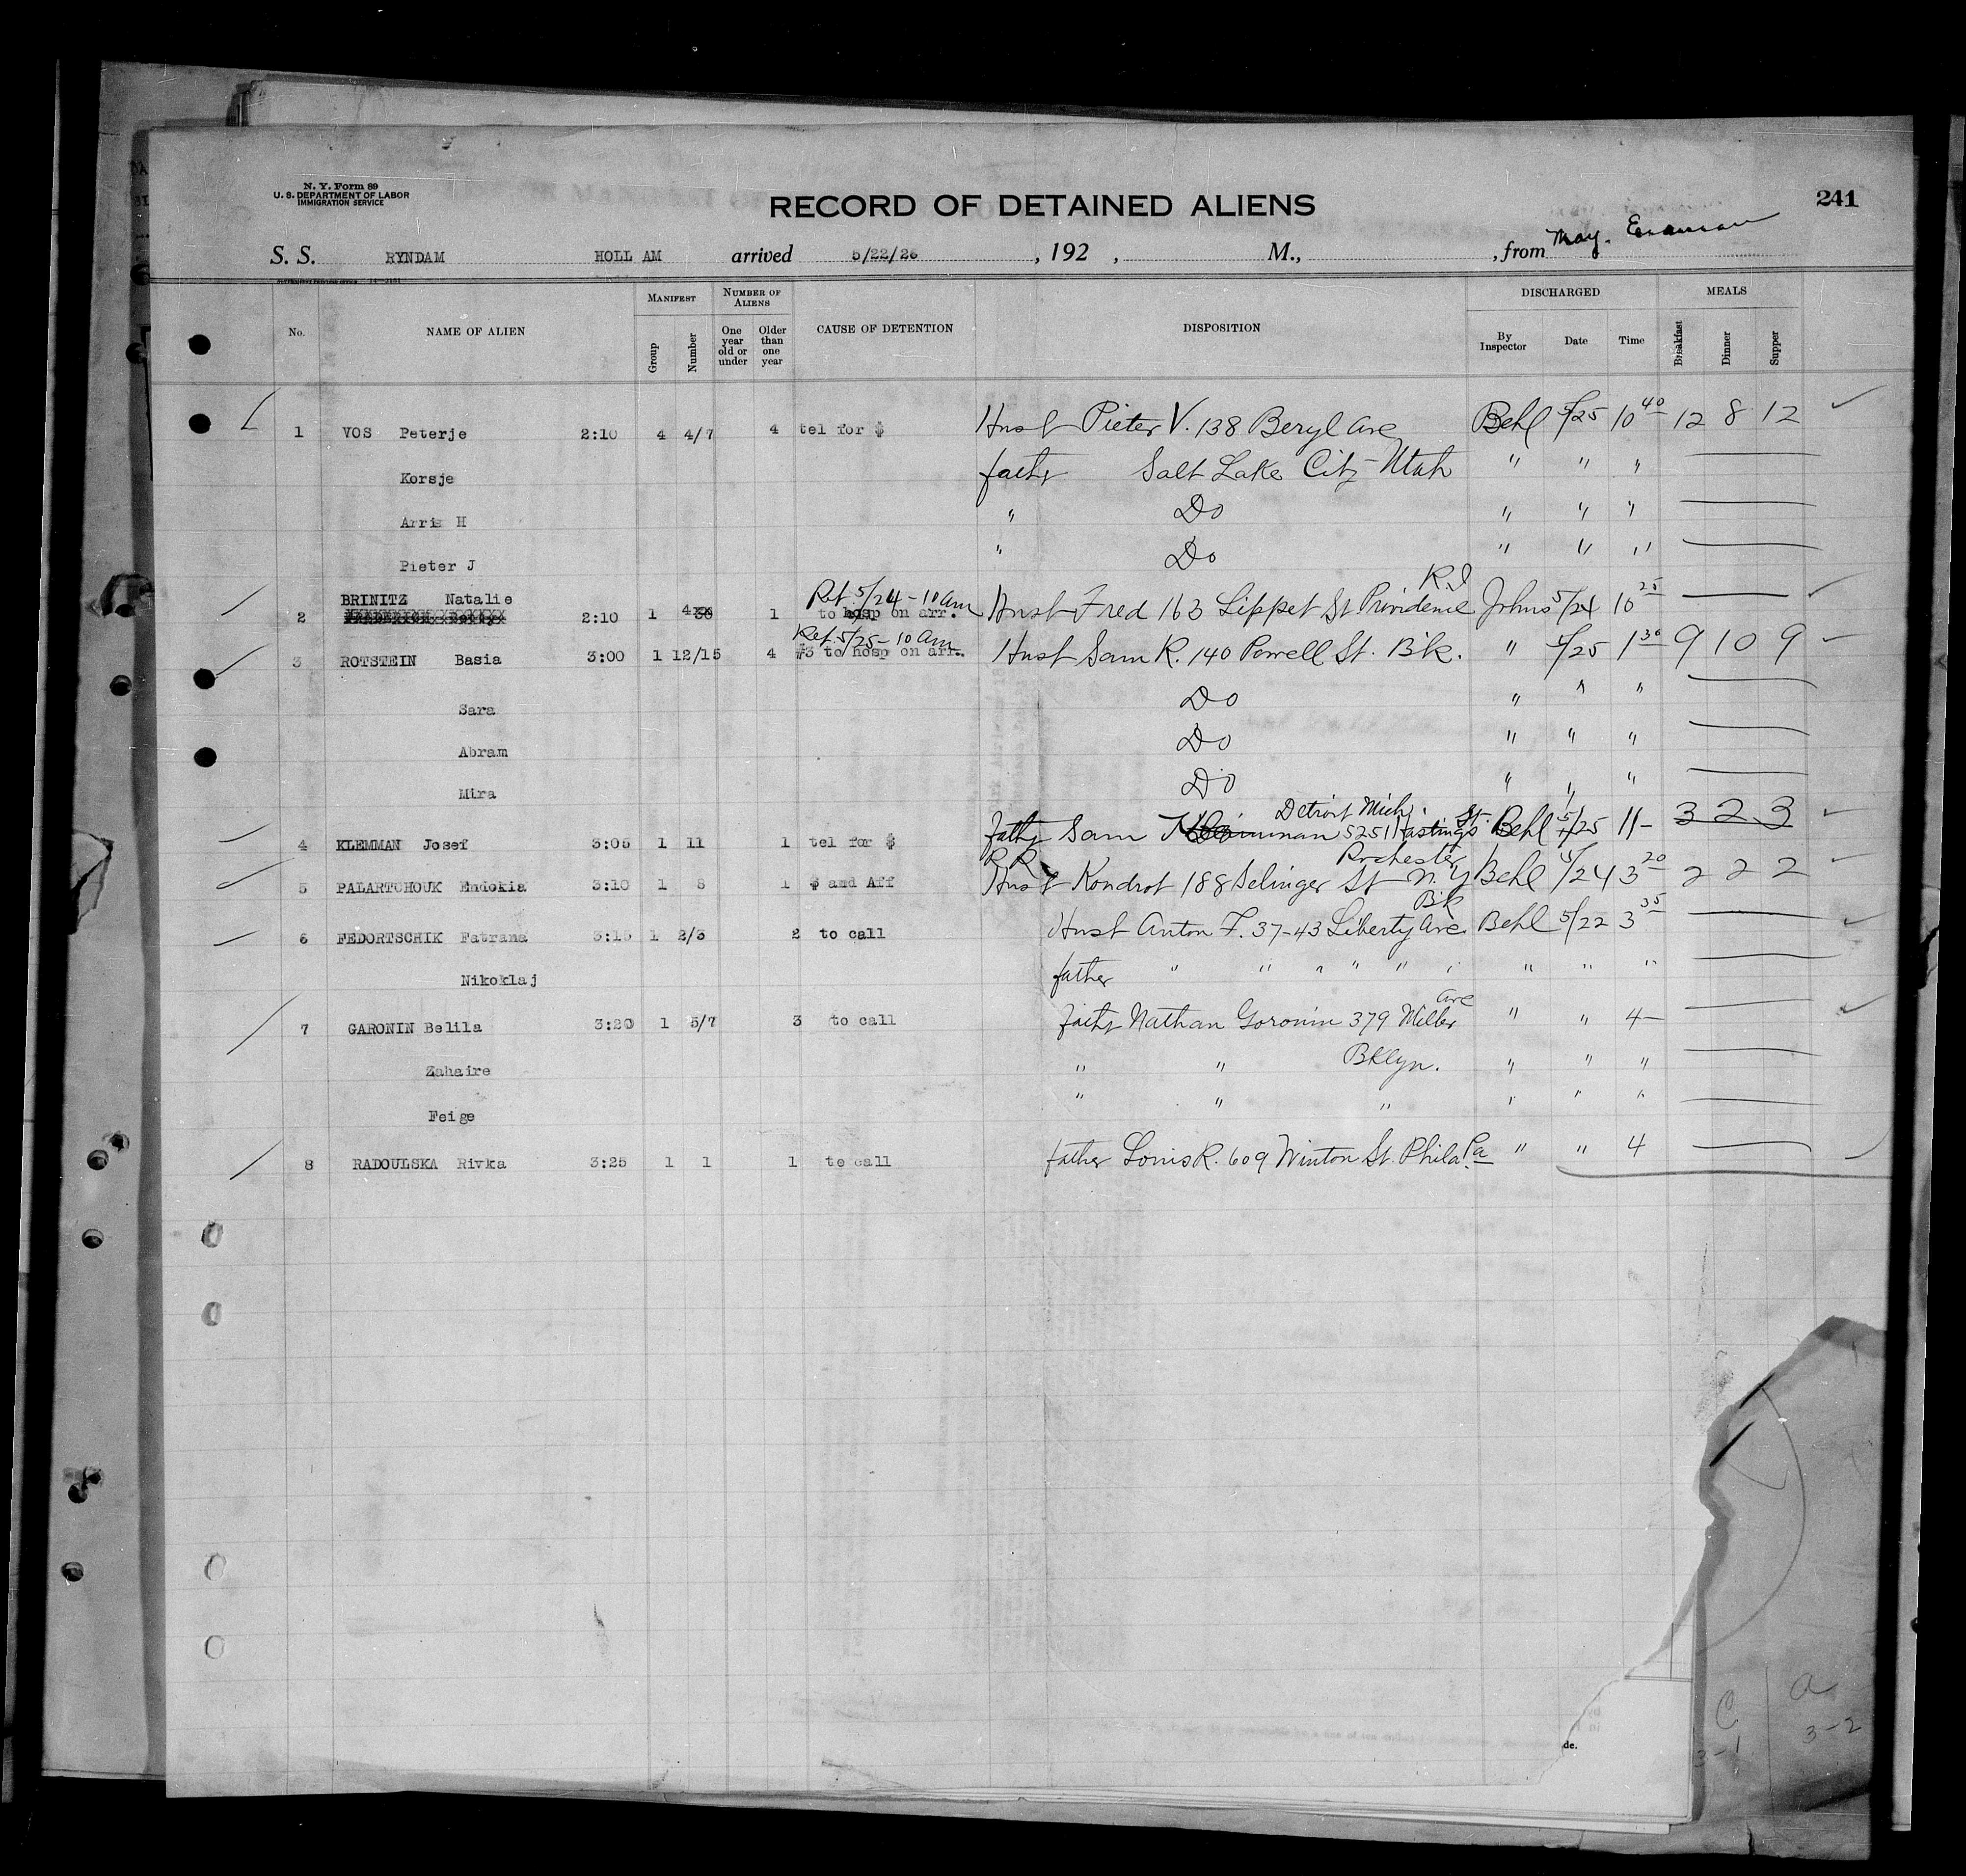 N. Y. Form 89
U. S. DEPARTMENT OF LABOR
IMMIGRATION SERVICE
RECORD OF DETAINED ALIENS
241
S. S. RYNDAM HOLL AM arrived 5/22/26, 192 , M., , from May.
No. NAME OF ALIEN MANIFEST Group Number NUMBER OF ALIENS One year old or under Older than one year CAUSE OF DETENTION DISPOSITION DISCHARGED By Inspector Date Time MEALS Breakfast Dinner Supper
1 VOS Peterje 2:10 4 4/7 4 tel for $ Husb Pieter V. 138 Beryl Ave Behl 5/25 10 40 12 8 12
Korsje fathr Salt Lake City Utah " " "
Arris H " Do " " "
Pieter J " Do " " "
BRINITZ Natalie Ret 5/24-10 am R.I
2 2:10 1 1 to hosp on arr. Husb Fred 163 Lippet St Providence Johns 5/24 10 25
Ret 5/25-10 am
3 ROTSTEIN Basia 3:00 1 12/15 4 #3 to hosp on arr. Husb Sam R. 140 Powell St. Bk. " 5/25 1 30 9 10 9
Sara Do " " "
Abram Do " " "
Mira Do " " "
Detroit Mich. St.
4 KLEMMAN Josef 3:05 1 11 1 tel for $ fathr Sam 525 Hastings Behl 5/25 11- 3 2 3
R R Rochester
5 PALARTCHOUK Endokia 3:10 1 8 1 $ and Aff Husb Kondrot 188 Selinger St N.Y Behl 5/24 3 20 2 2 2
Bk
6 FEDORTSCHIK Fatrana 3:15 1 2/3 2 to call Husb Anton F. 37-43 Liberty Ave. Behl 5/22 3 35
Nikoklaj father " " " " " " " " "
Ave
7 GARONIN Belila 3:20 1 5/7 3 to call fathr Nathan Goronin 379 Miller " " 4-
Zahaire " " Bklyn. " " "
Feige " " " " " "
8 RADOULSKA Rivka 3:25 1 1 1 to call father Louis R. 609 Winton St. Phila Pa " " 4
de.
C
3-1
a
3-2